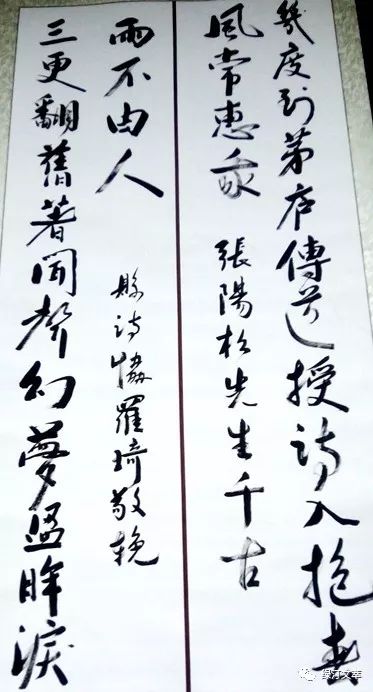 幾度到茅庐傳道授詩入抱春
風常惠我
張陽松先生千古
三更翻舊著聞聲幻夢盈眸淚
雨不由人
縣詩協羅琦敬挽
绿汀文萃